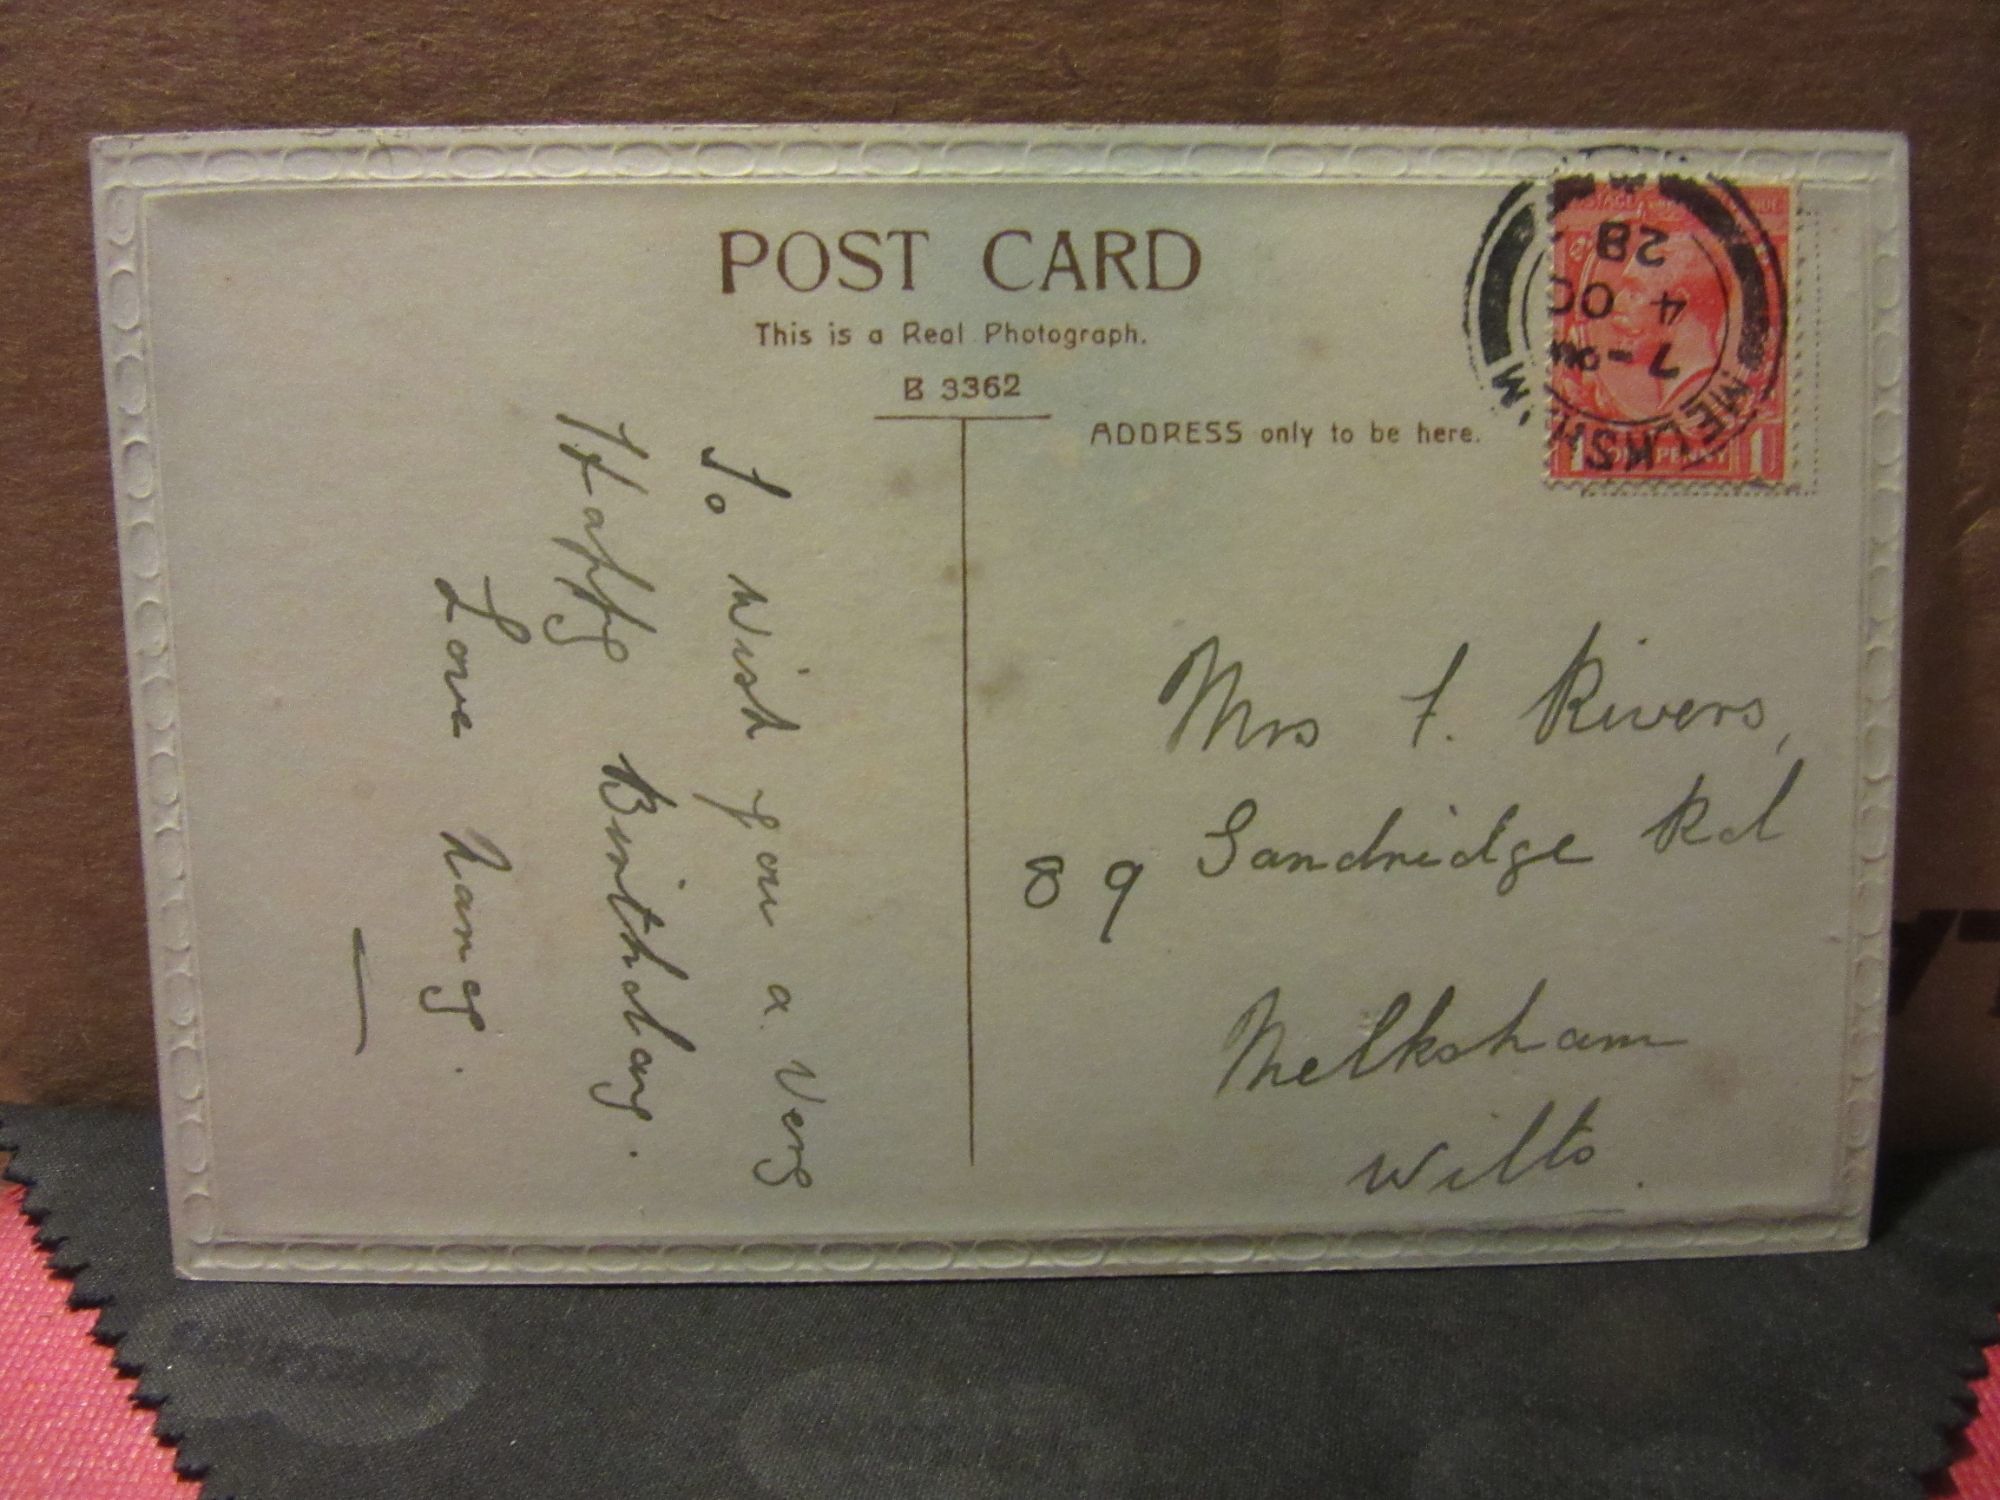 POST CARD
This is a Real Photograph.
B 3362
ADDRESS only to be here.
To Wish you a Very
Happy Birthday.
Love Harry.
Mrs F. Rivers,
89 Sandridge Rd
Melksham
Wilts.
MELKSHAM
7-PM
4 OC
28
1 ONE PENNY 1